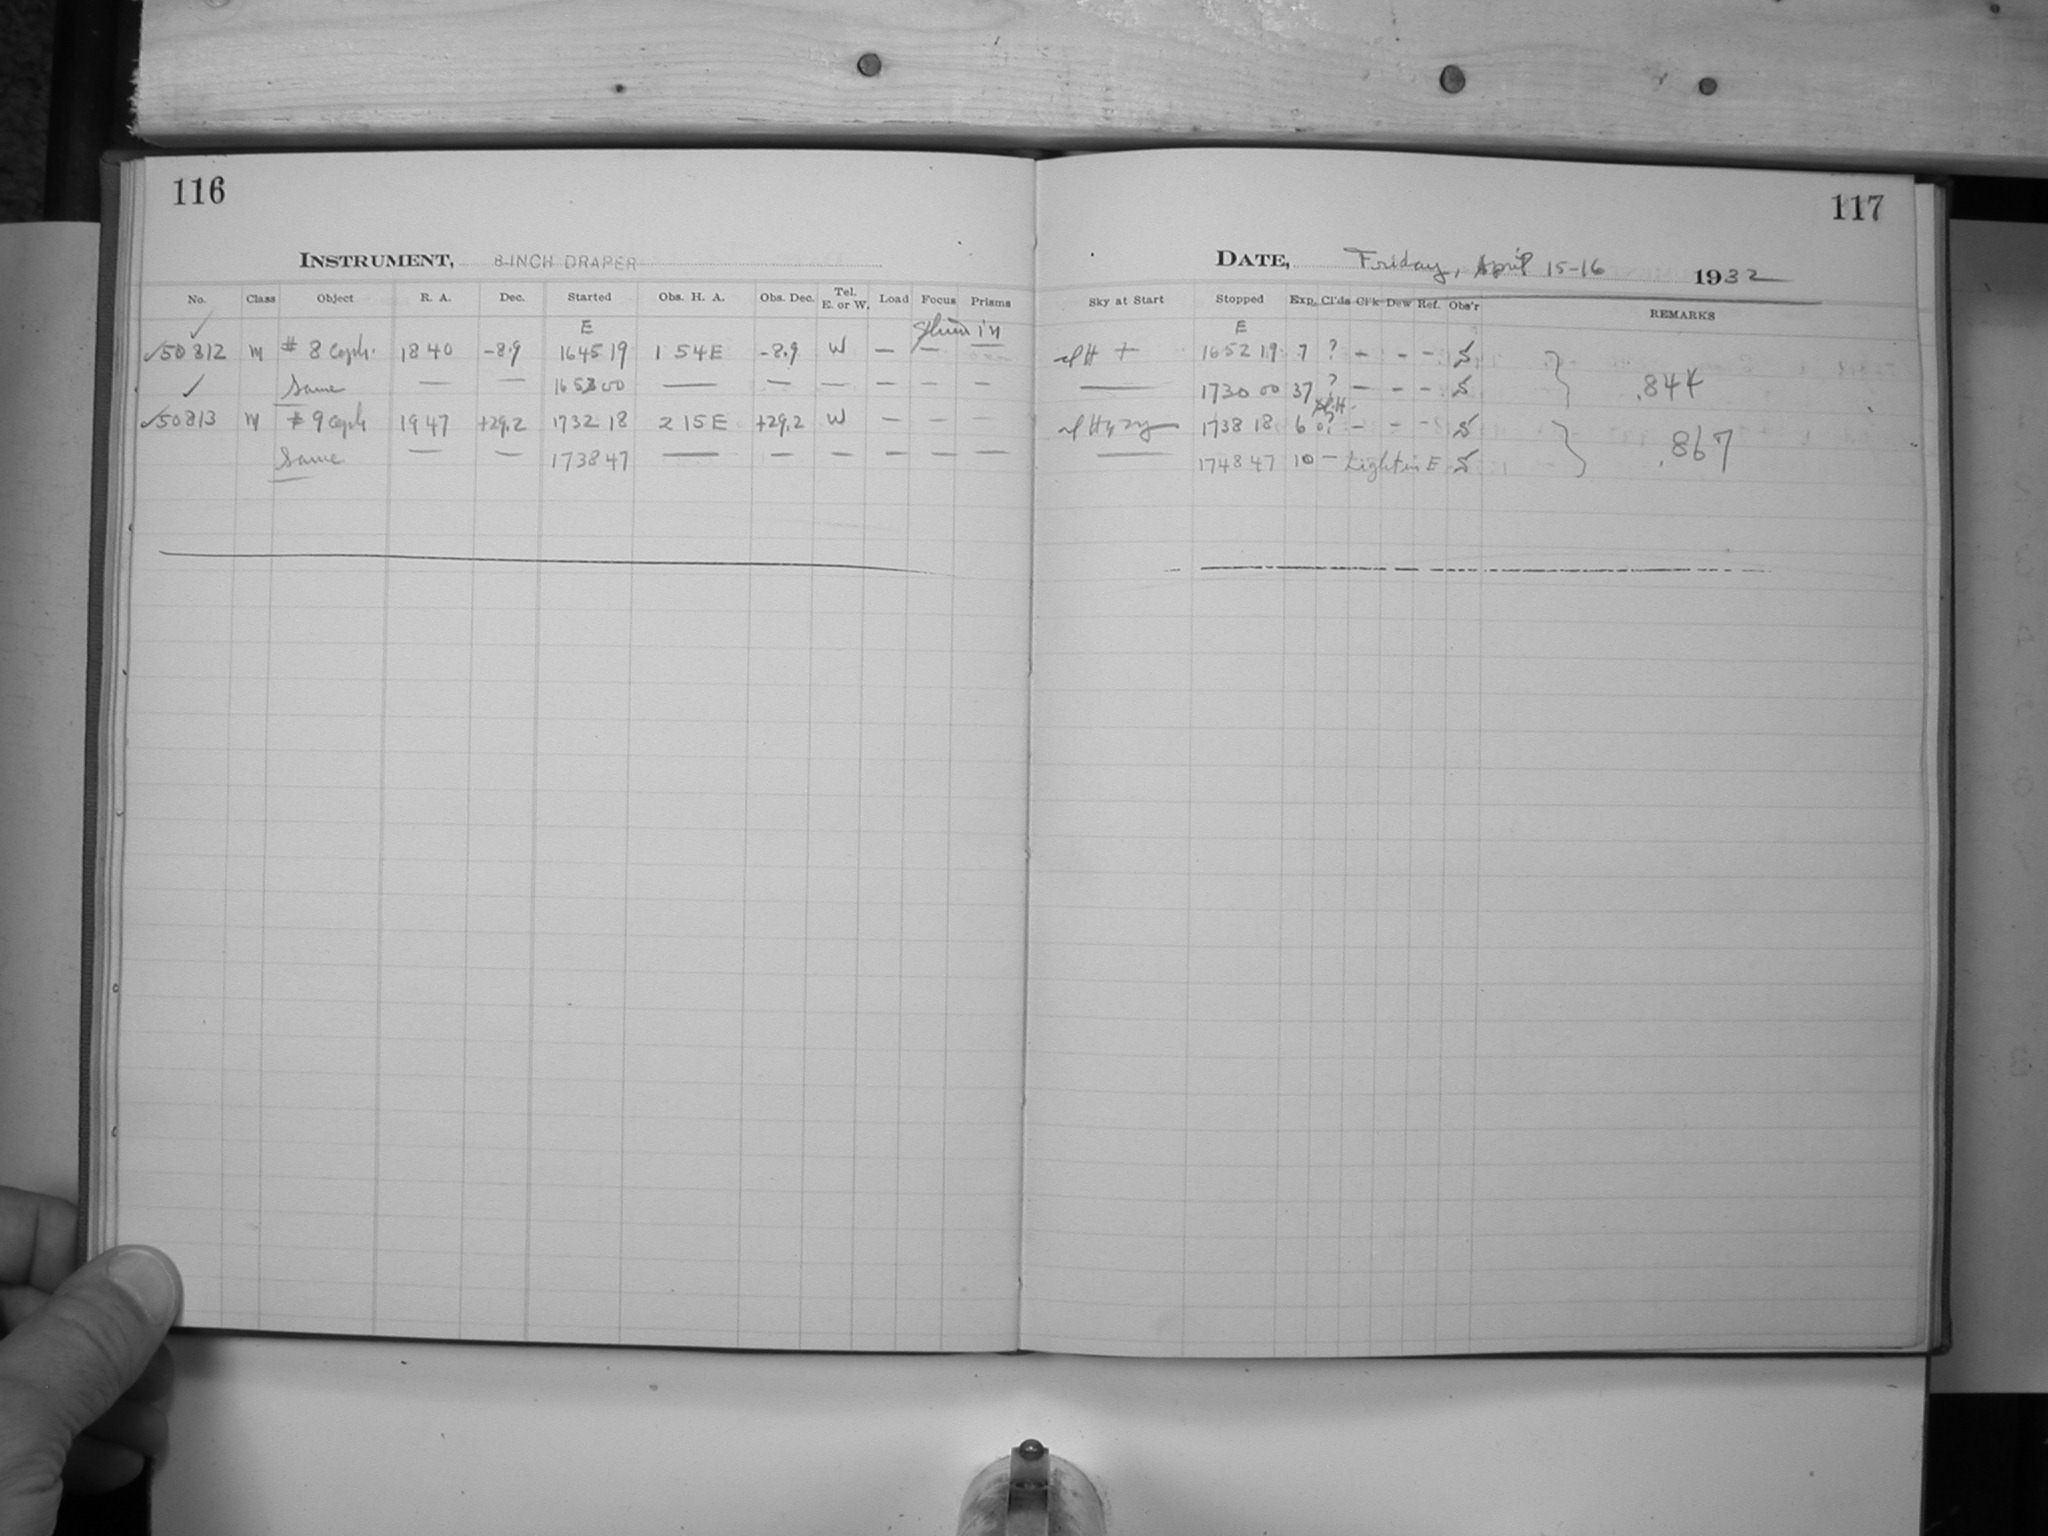 116
117
INSTRUMENT, 8-INCH DRAPER
DATE, Friday, April 15-16 1932
No. Class Object R. A. Dec. Started Obs. H. A. Obs. Dec. Tel. E. or W. Load Focus Prisms
Sky at Start Stopped Exp. Cl'ds Cl'k Dew Ref. Obs'r REMARKS
E in E
✓50812 M # 8 Ceph. 1840 -8.9 1645 19 1 54 E -8.9 W — — — H + 1652 19 7 ? - - -
✓ Same — — 1653 00 — — — — — — — 1730 00 37 ? - - - .844
✓50813 M # 9 Ceph 1947 +29.2 1732 18 2 15 E +29.2 W — — — Hazy 1738 18 6 ? - - -
Same — — 1738 47 — — — — — — — 1748 47 10 — Light in E .867